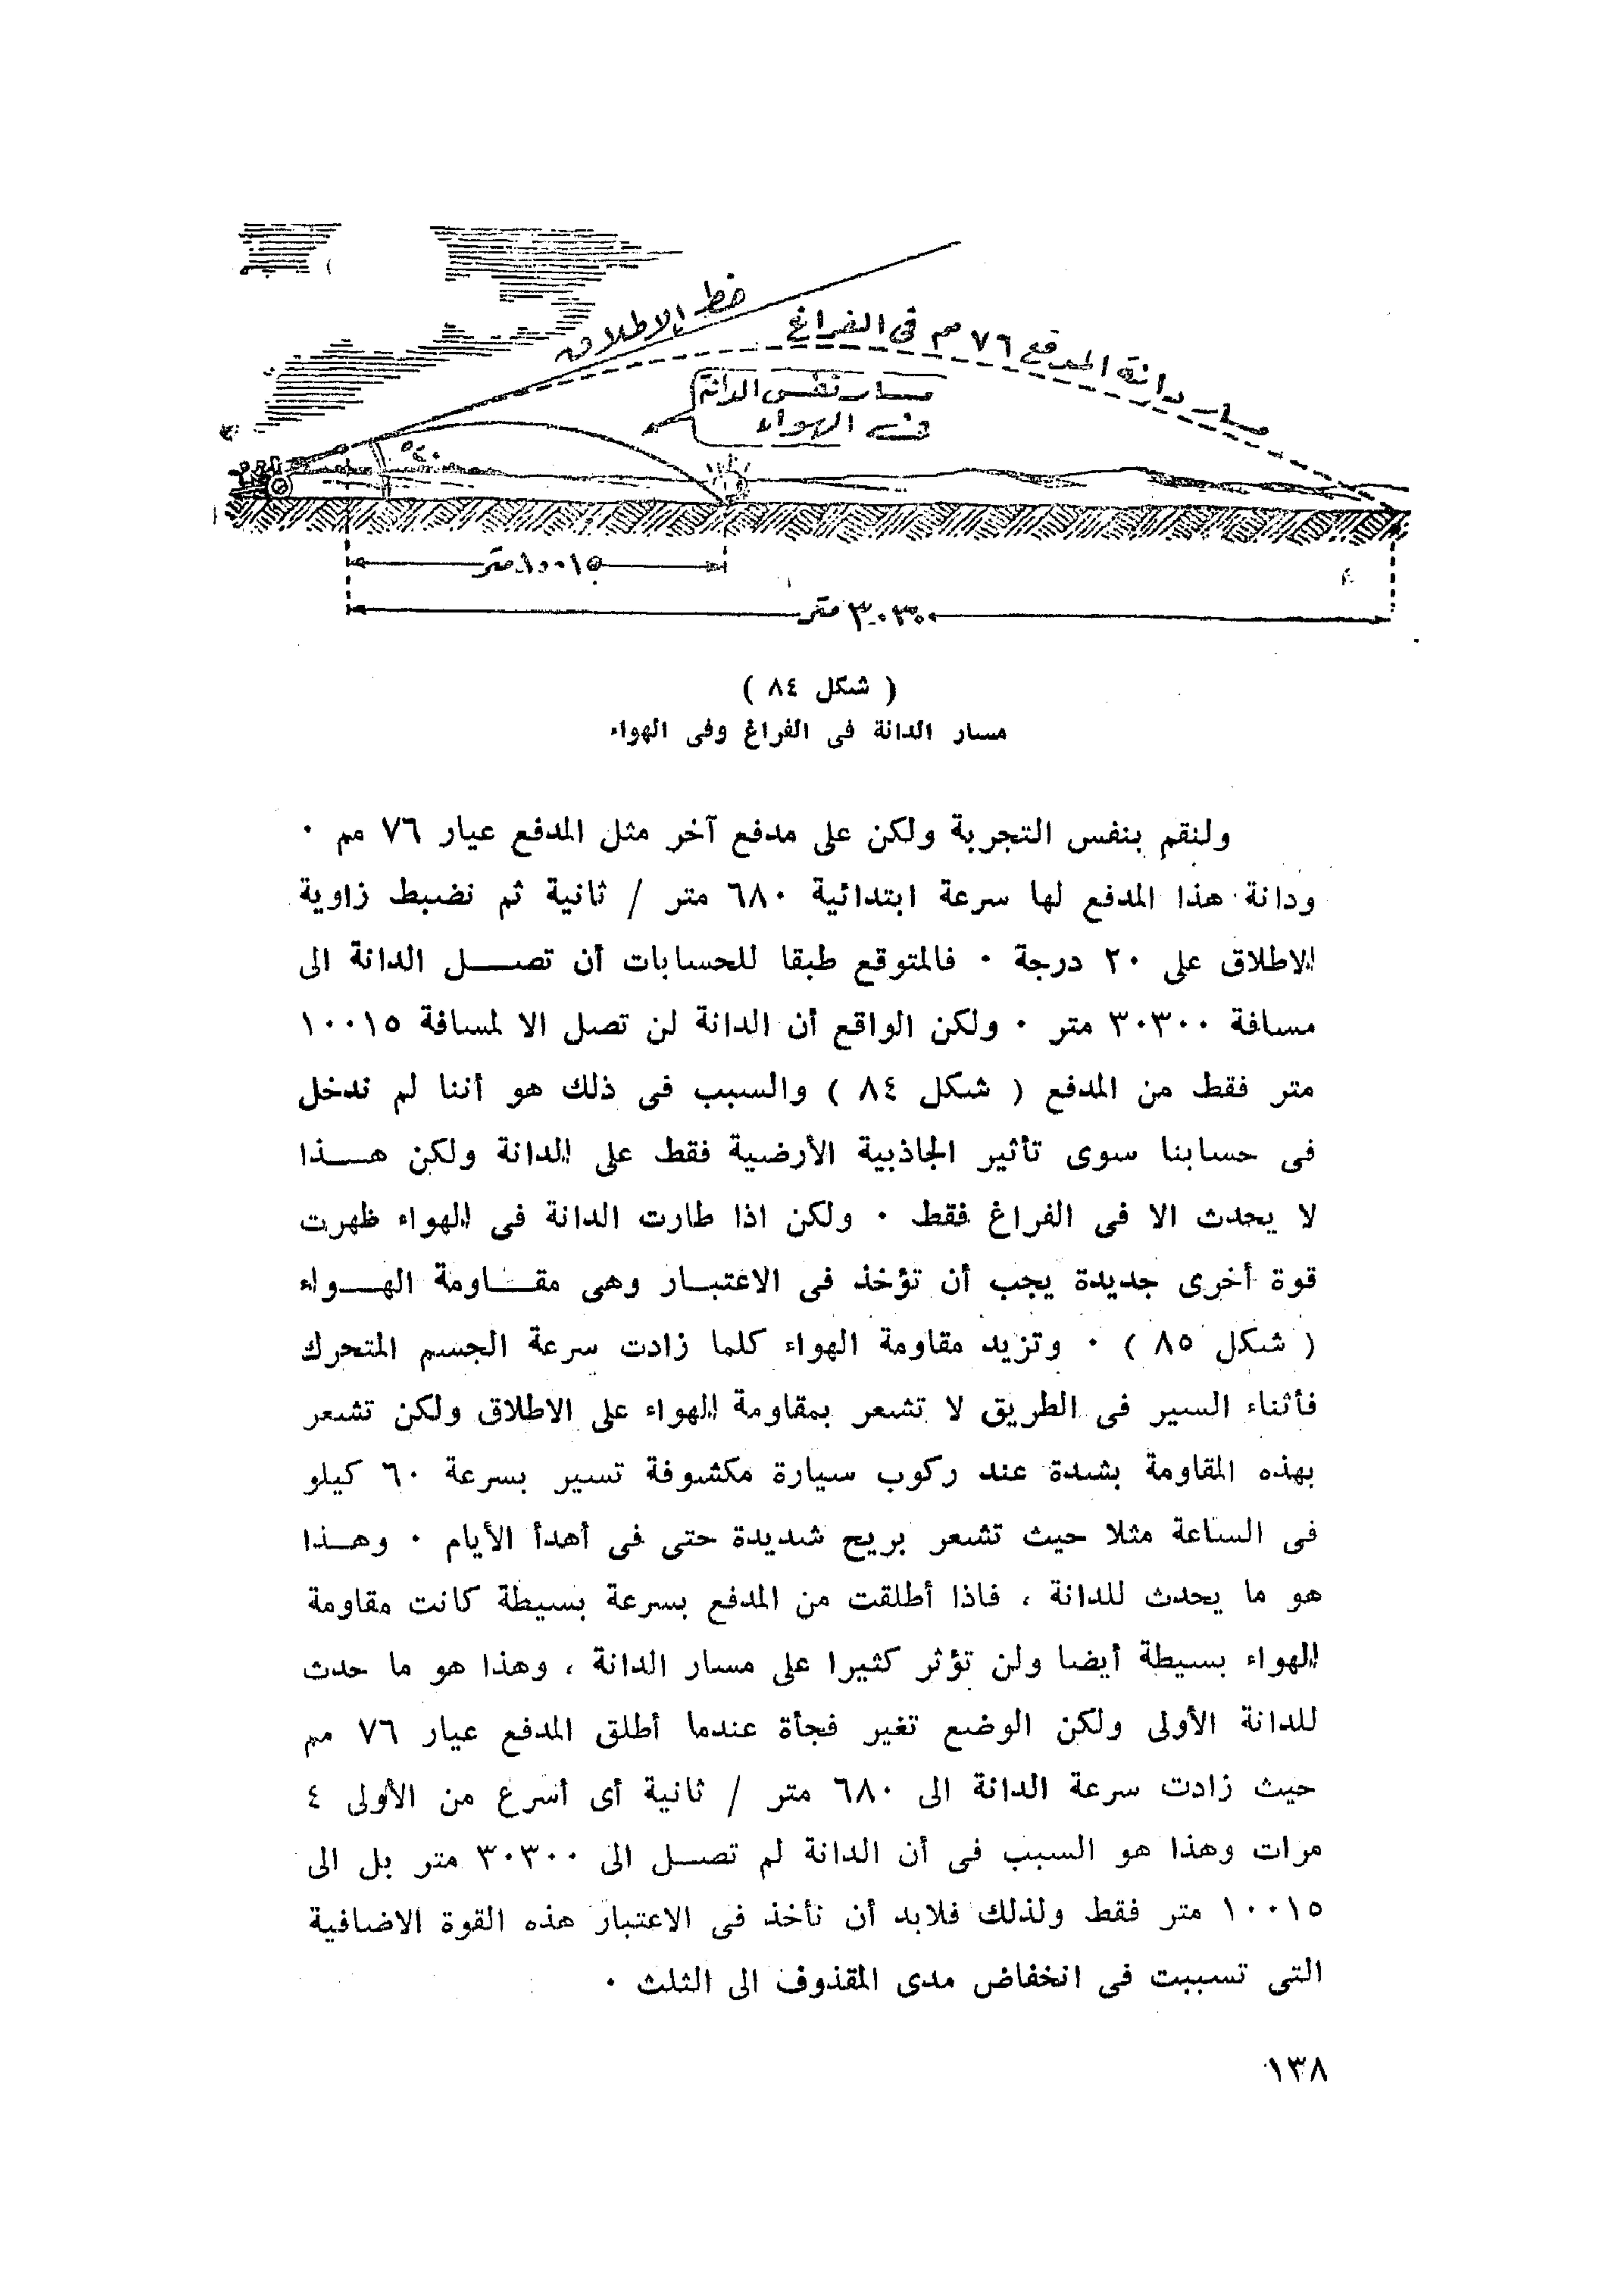 خط الاطلاق
مسار دانة المدفع ٧٦ مم فى الفراغ
مسار نفس الدانة
فى الهواء
٢٠°
١٠٠١٥ متر
٣٠٣٠٠ متر
( شكل ٨٤ )
مسار الدانة فى الفراغ وفى الهواء
ولنقم بنفس التجربة ولكن على مدفع آخر مثل المدفع عيار ٧٦ مم ٠
ودانة هذا المدفع لها سرعة ابتدائية ٦٨٠ متر / ثانية ثم نضبط زاوية
الاطلاق على ٢٠ درجة ٠ فالمتوقع طبقا للحسابات أن تصــل الدانة الى
مسافة ٣٠٣٠٠ متر ٠ ولكن الواقع أن الدانة لن تصل الا لمسافة ١٠٠١٥
متر فقط من المدفع ( شكل ٨٤ ) والسبب فى ذلك هو أننا لم ندخل
فى حسابنا سوى تأثير الجاذبية الأرضية فقط على الدانة ولكن هــذا
لا يحدث الا فى الفراغ فقط ٠ ولكن اذا طارت الدانة فى الهواء ظهرت
قوة أخرى جديدة يجب أن تؤخذ فى الاعتبــار وهى مقــاومة الهــواء
( شكل ٨٥ ) ٠ وتزيد مقاومة الهواء كلما زادت سرعة الجسم المتحرك
فأثناء السير فى الطريق لا تشعر بمقاومة الهواء على الاطلاق ولكن تشعر
بهذه المقاومة بشدة عند ركوب سيارة مكشوفة تسير بسرعة ٦٠ كيلو
فى الساعة مثلا حيث تشعر بريح شديدة حتى فى أهدأ الأيام ٠ وهــذا
هو ما يحدث للدانة ، فاذا أطلقت من المدفع بسرعة بسيطة كانت مقاومة
الهواء بسيطة أيضا ولن تؤثر كثيرا على مسار الدانة ، وهذا هو ما حدث
للدانة الأولى ولكن الوضع تغير فجأة عندما أطلق المدفع عيار ٧٦ مم
حيث زادت سرعة الدانة الى ٦٨٠ متر / ثانية أى أسرع من الأولى ٤
مرات وهذا هو السبب فى أن الدانة لم تصــل الى ٣٠٣٠٠ متر بل الى
١٠٠١٥ متر فقط ولذلك فلابد أن نأخذ فى الاعتبار هذه القوة الاضافية
التى تسببت فى انخفاض مدى المقذوف الى الثلث ٠
١٣٨